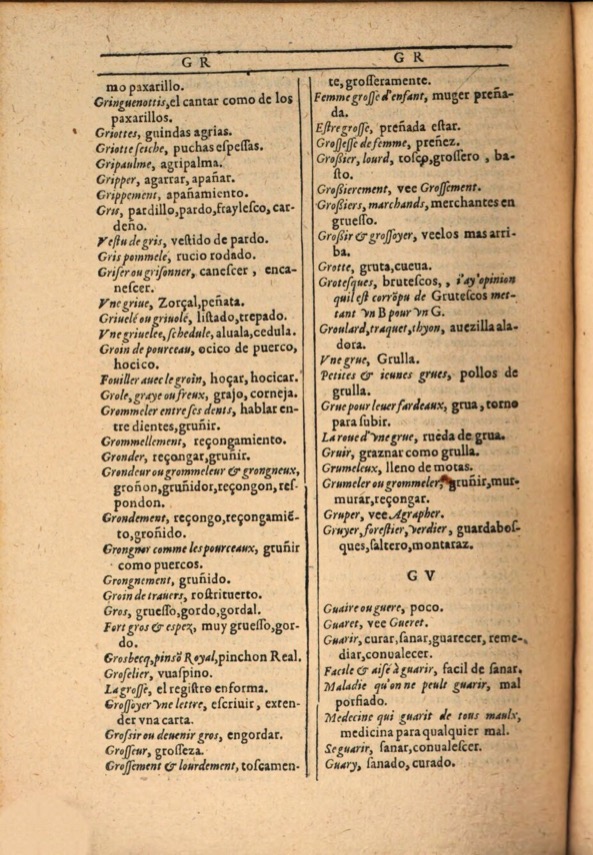 G R
mo paxarillo.
Gringuenottis, el cantar como de los
paxarillos.
Griottes, guindas agrias.
Griotte seiche, puchas espessas.
Gripaulme, agripalma.
Gripper, agarrar, apañar.
Grippement, apañamiento.
Gris, pardillo, pardo, fraylesco, car-
deño.
Vestu de gris, vestido de pardo.
Gris pommelé, rucio rodado.
Griser ou grisonner, canescer, enca-
nescer.
Vne griue, Zorçal, peñata.
Griuelé ou griuolé, listado, trepado.
Vne griuelee, schedule, aluala, cedula.
Groin de pourceau, ocico de puerco,
hocico.
Fouiller auec le groin, hoçar, hocicar.
Grole, graye ou freux, grajo, corneja.
Grommeler entre ses dents, hablar en-
tre dientes, gruñir.
Grommellement, reçongamiento.
Gronder, reçongar, gruñir.
Grondeur ou grommeleur & grongneux,
groñon, gruñidor, reçongon, res-
pondon.
Grondement, reçongo, reçongamiẽ-
to, groñido.
Grongner comme les pourceaux, gruñir
como puercos.
Grongnement, gruñido.
Groin de trauers, rostrituerto.
Gros, gruesso, gordo, gordal.
Fort gros & espez, muy gruesso, gor-
do.
Grosbecq, pinsõ Royal, pinchon Real.
Groselier, vuaspino.
La grosse, el registro enforma.
Grossoyer vne lettre, escriuir, exten-
der vna carta.
Grossir ou deuenir gros, engordar.
Grosseur, grosseza.
Grossement & lourdement, toscamen-
G R
te, grosseramente.
Femme grosse d'enfant, muger preña-
da.
Estre grosse, preñada estar.
Grossesse de femme, preñez.
Grossier, lourd, tosco, grossero, ba-
sto.
Grossierement, vee Grossement.
Grossiers, marchands, merchantes en
gruesso.
Grossir & grossoyer, veelos mas arri-
ba.
Grotte, gruta, cueua.
Grotesques, brutescos,, i'ay opinion
quil est corrõpu de Grutescos met-
tant vn B pour vn G.
Groulard, traquet, thyon, auezilla ala-
dora.
Vne grue, Grulla.
Petites & ieunes grues, pollos de
grulla.
Grue pour leuer fardeaux, grua, torno
para subir.
La roue d'vne grue, rueda de grua.
Gruir, graznar como grulla.
Grumeleux, lleno de motas.
Grumeler ou grommeler, gruñir, mur-
murar, reçongar.
Gruper, vee Agrapher.
Gruyer, forestier, verdier, guardabos-
ques, saltero, montaraz.
G V
Guaire ou guere, poco.
Guaret, vee Gueret.
Guarir, curar, sanar, guarecer, reme-
diar, conualecer.
Facile & aisé à guarir, facil de sanar.
Maladie qu'on ne peult guarir, mal
porfiado.
Medecine qui guarit de tous maulx,
medicina para qualquier mal.
Se guarir, sanar, conualescer.
Guary, sanado, curado.